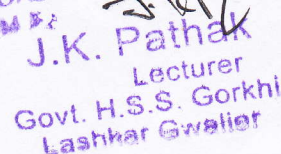 J.K. Pathak
Lecturer
Govt. H.S.S. Gorkhi
Lashkar Gwalior